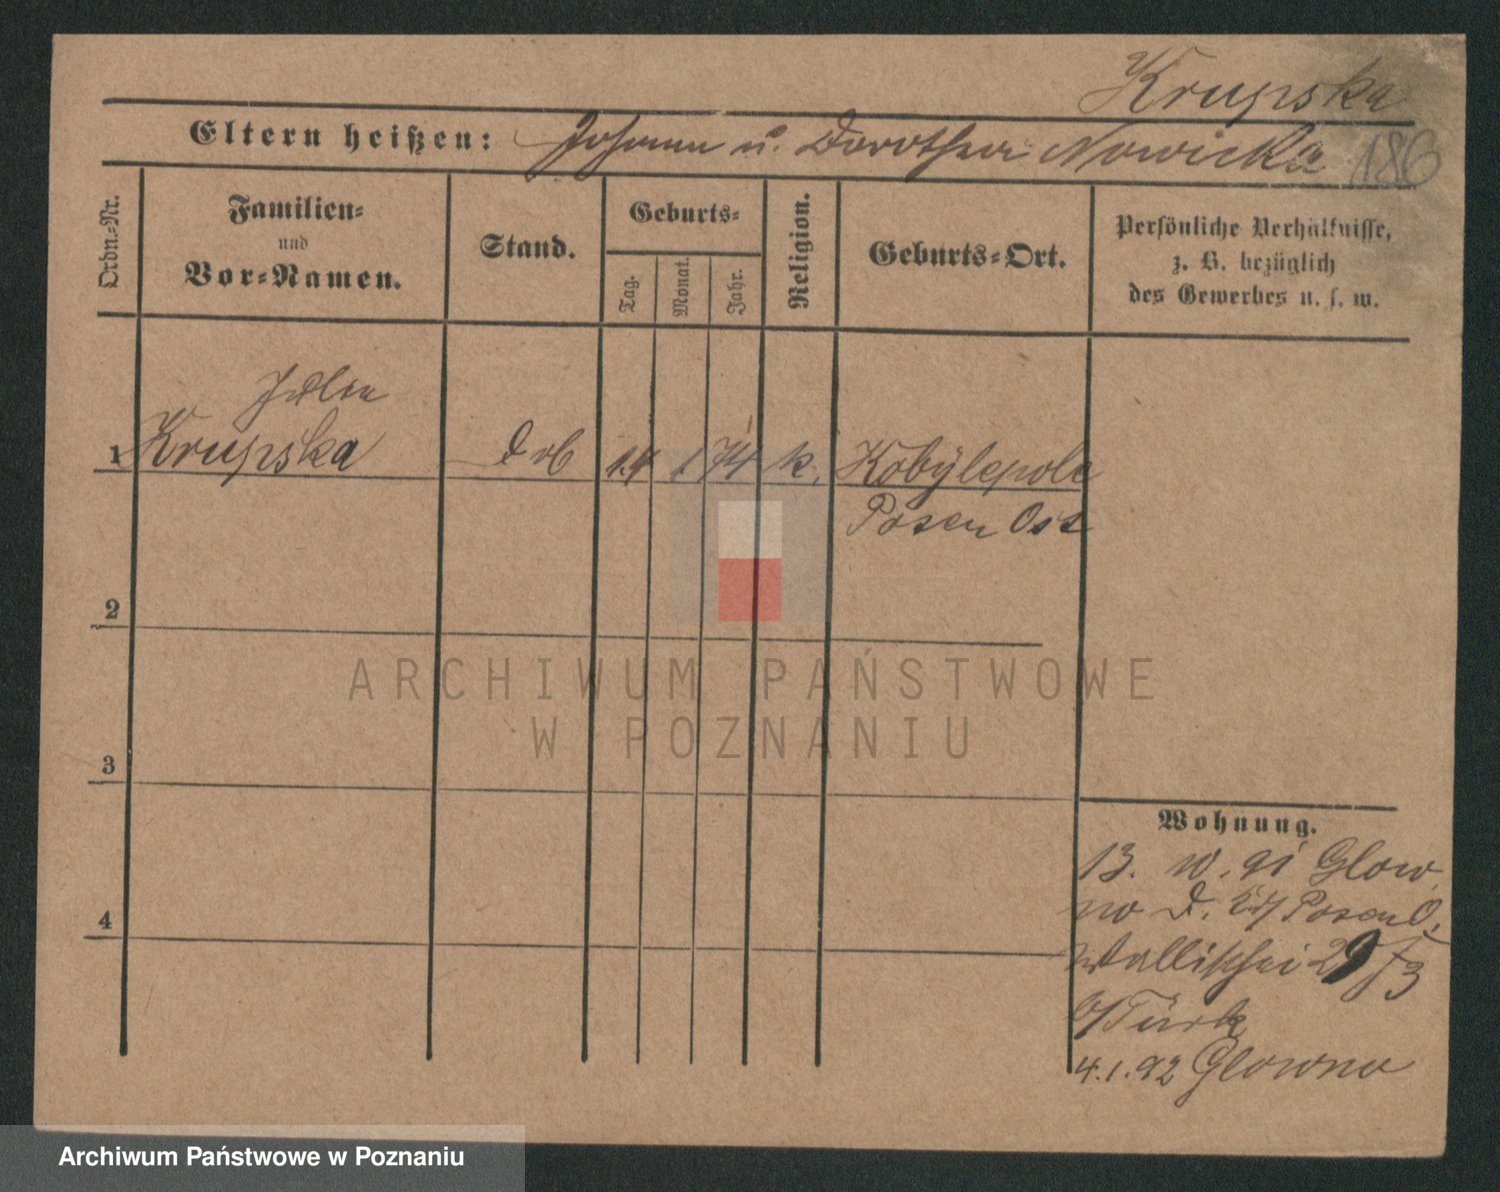 Krupska
Eltern heißen: Johann u. Dorothea Nowicka 186
Ordn.-Nr.
Familien-
und
Vor-Namen.
Stand.
Geburts-
Tag.
Monat.
Jahr.
Religion.
Geburts-Ort.
Persönliche Verhältnisse,
z. B. bezüglich
des Gewerbes u. s. w.
1 Krupska 14 1 74 k. Kobylepole
Posen Ost
2
3
4
Wohnung.
13. 10. 91 Glow
no D. Posen O.
Wallischei
b/Türk
4.1.92 Glowno
ARCHIWUM PAŃSTWOWE
W POZNANIU
Archiwum Państwowe w Poznaniu